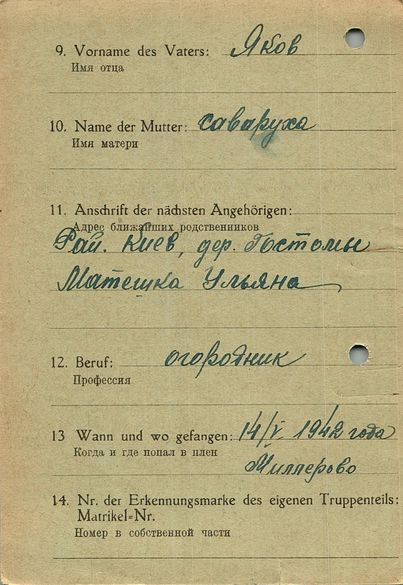 9. Vorname des Vaters: Яков
Имя отца
10. Name der Mutter: Саваруха
Имя матери
11. Anschrift der nächsten Angehörigen:
Адрес ближайших родственников
Рай. Киев, дер. Гостомы
Матешка Ульяна
12. Beruf: огородник
Профессия
13 Wann und wo gefangen: 14/V 1942 года
Когда и где попал в плен
Миллерово
14. Nr. der Erkennungsmarke des eigenen Truppenteils:
Matrikel=Nr.
Номер в собственной части